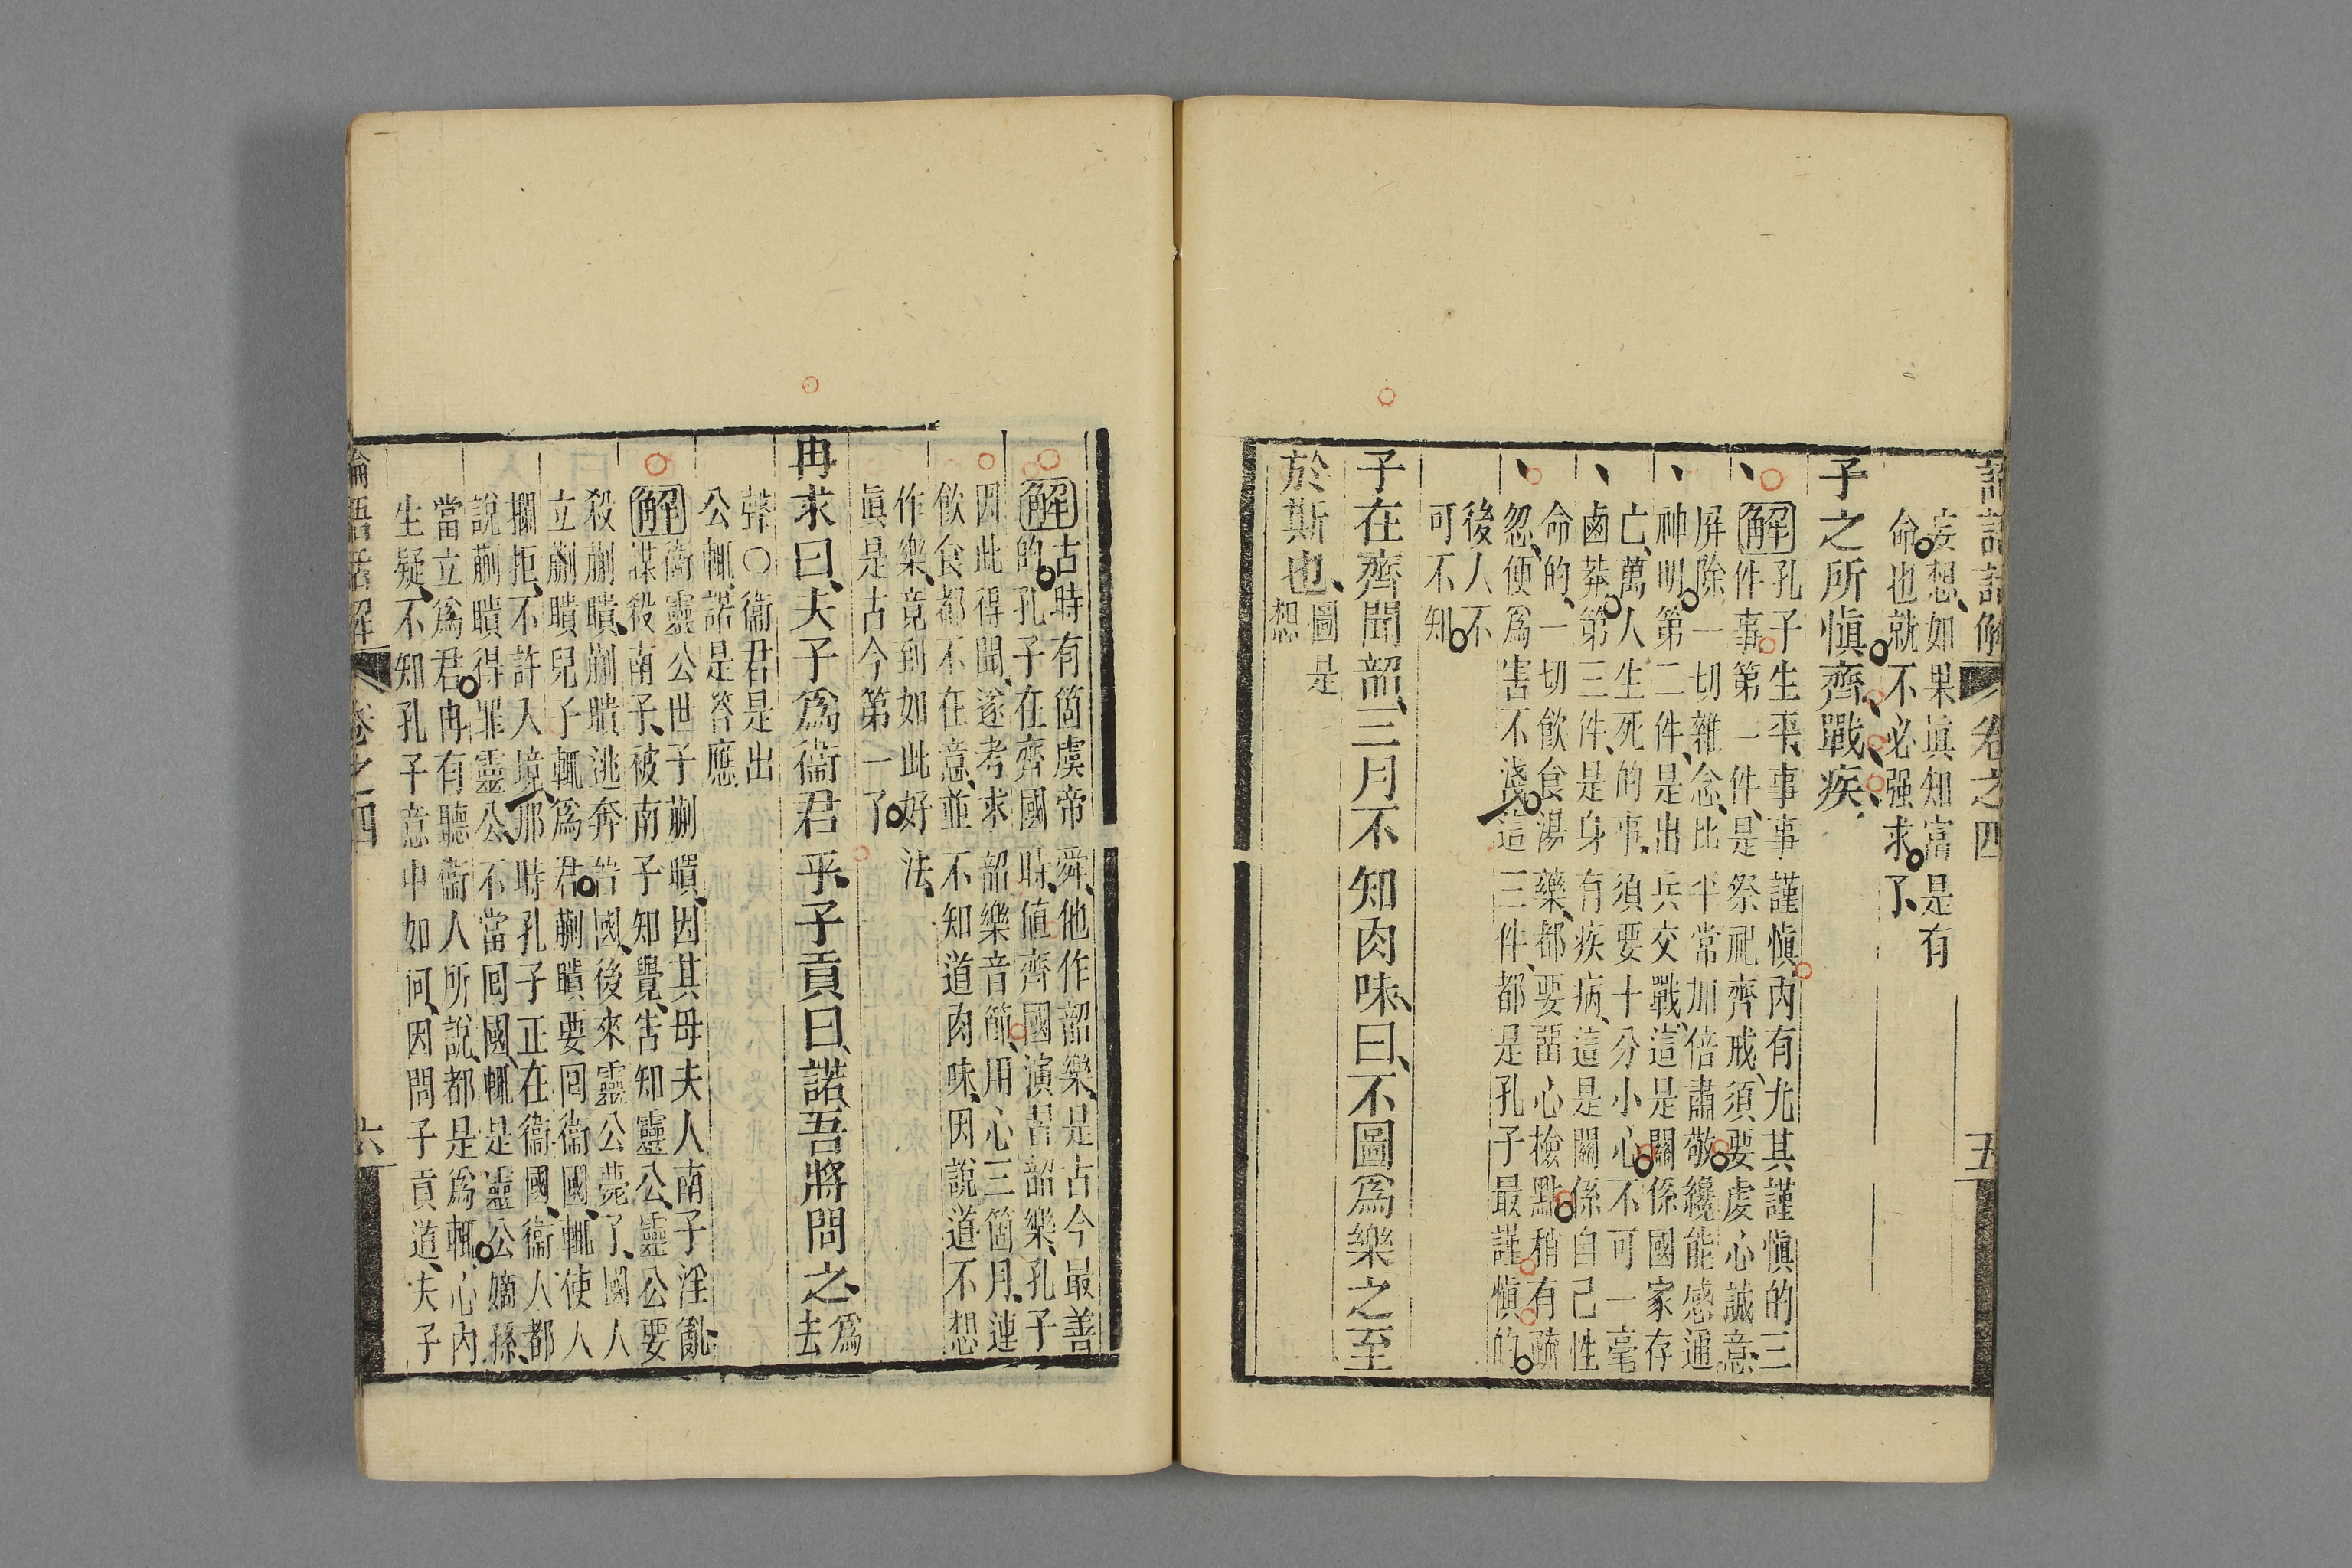 論語話解 卷之四 五
妄想、如果眞知富是有
命也就不必强求了、
子之所愼齊、戰、疾、
解 孔子生平、事事謹愼、內有尤其謹愼的三
件事第一件、是祭祀齊戒、須要虔心誠意、
屛除一切雜念、比平常加倍肅敬、纔能感通
神明、第二件、是出兵交戰、這是關係國家存
亡、萬人生死的事、須要十分小心、不可一毫
鹵莽、第三件、是身有疾病、這是關係自己性
命的、一切飮食湯藥、都要留心檢點、稍有疏
忽、便爲害不淺、這三件、都是孔子最謹愼的
後人不
可不知
子在齊聞韶、三月不知肉味、曰、不圖爲樂之至
於斯也、圖是
想
解 古時有箇虞帝舜、他作韶樂、是古今最善
的、孔子在齊國時、値齊國演習韶樂、孔子
因此得聞、遂考求韶樂音節、用心三箇月、連
飮食都不在意、並不知道肉味、因說道、不想
作樂、竟到如此好法、
眞是古今第一了
冉求曰、夫子爲衞君乎、子貢曰、諾、吾將問之、爲
去
聲○衞君是出
公輒、諾是答應
解 衞靈公世子蒯聵、因其母夫人南子淫亂、
謀殺南子、被南子知覺、告知靈公、靈公要
殺蒯聵、蒯聵逃奔晉國、後來靈公薨了、國人
立蒯聵兒子輒爲君、蒯聵要回衞國、輒使人
攔拒、不許入境、那時孔子正在衞國、衞人都
說蒯聵得罪靈公、不當回國、輒是靈公嫡孫、
當立爲君、冉有聽衞人所說、都是爲輒、心內
生疑、不知孔子意中如何、因問子貢道、夫子
論語話解 卷之四 六